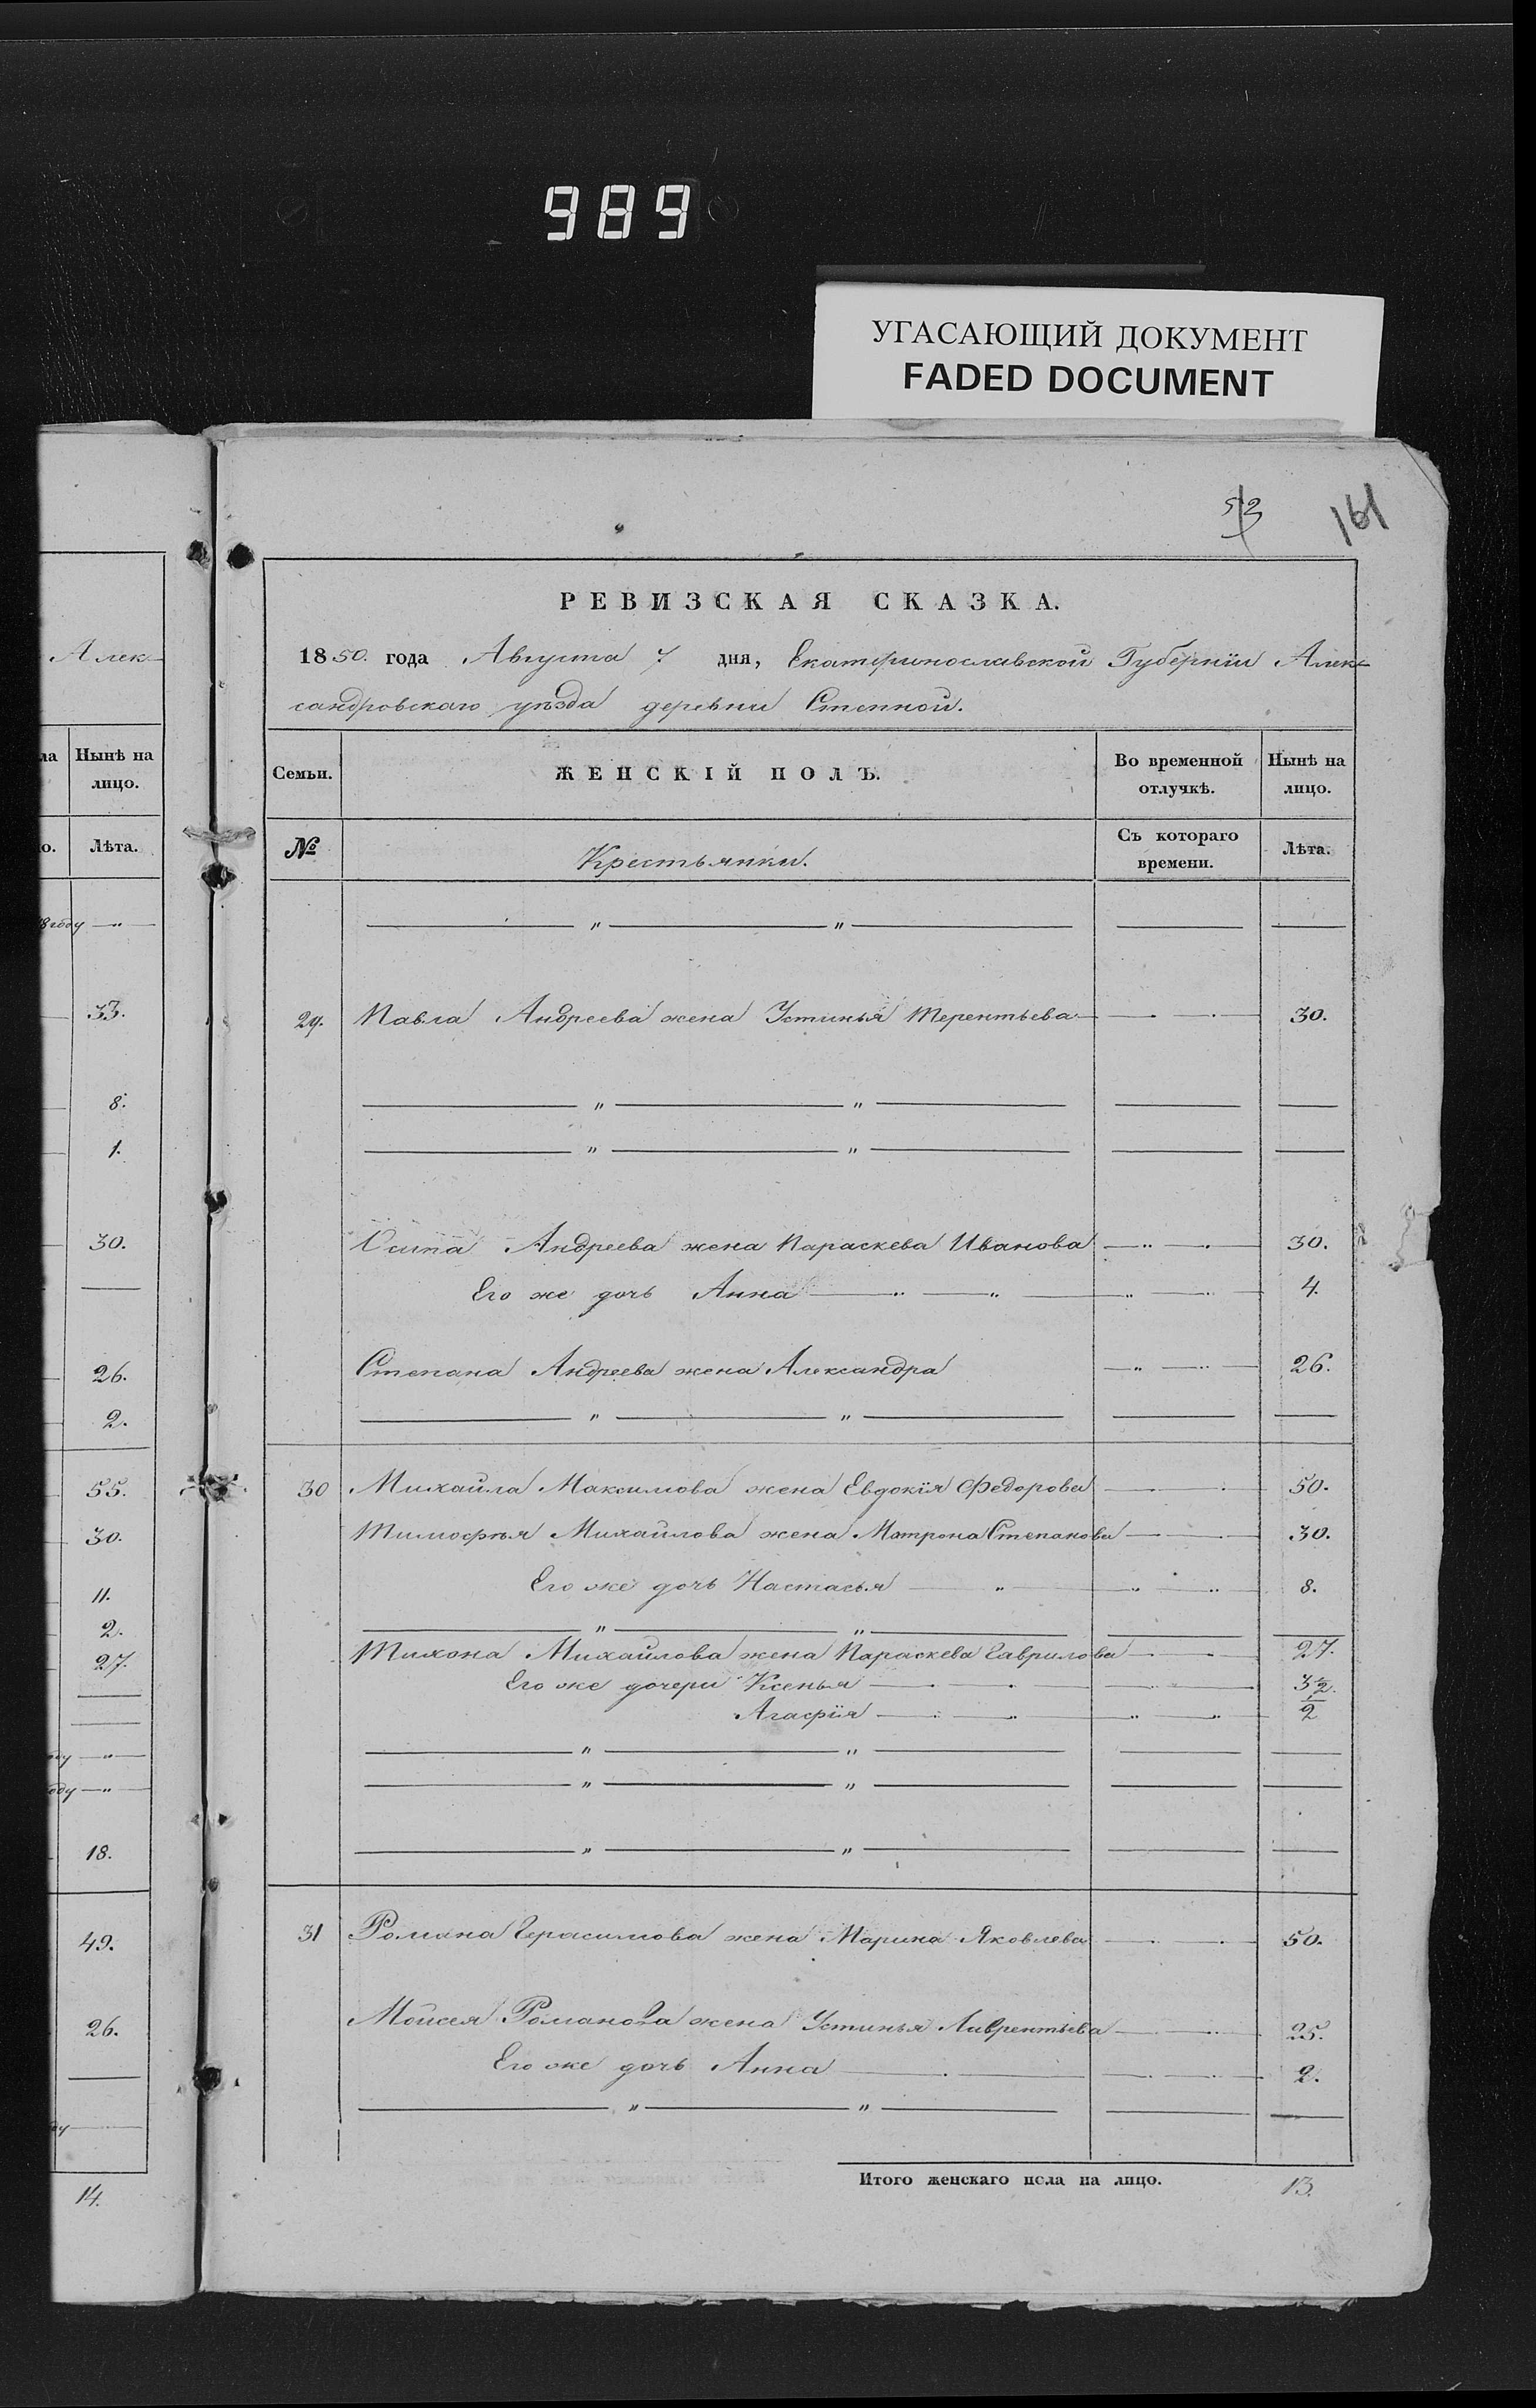 989
УГАСАЮЩИЙ ДОКУМЕНТ
FADED DOCUMENT
52 161
РЕВИЗСКАЯ СКАЗКА.
1850. года Августа 7 дня, Екатеринославской Губерніи Алек-
сандровскаго уѣзда деревни Степной.
Семьи. ЖЕНСКІЙ ПОЛЪ. Во временной отлучкѣ. Нынѣ на лицо.
№ Крестьянки. Съ котораго времени. Лѣта.
29. Павла Андреева жена Устинья Терентьева 30.
Осипа Андреева жена Параскева Иванова 30.
Его же дочь Анна 4.
Степана Андреева жена Александра 26.
30 Михайла Максимова жена Евдокія Федорова 50.
Тимофѣя Михайлова жена Матрона Степанова 30.
Его же дочь Настасья 8.
Тихона Михайлова жена Параскева Гаврилова 27.
Его же дочери Ксенья 3½.
Агафія ½
31 Романа Герасимова жена Марина Яковлева 50.
Мойсея Романова жена Устинья Лаврентьева 25.
Его же дочь Анна 2.
Итого женскаго пола на лицо. 13.
Алек-
ла Нынѣ на
лицо.
о. Лѣта.
8 году
33.
8.
1.
30.
26.
2.
55.
30.
11.
2.
27.
ду
оду
18.
49.
26.
ду
14.